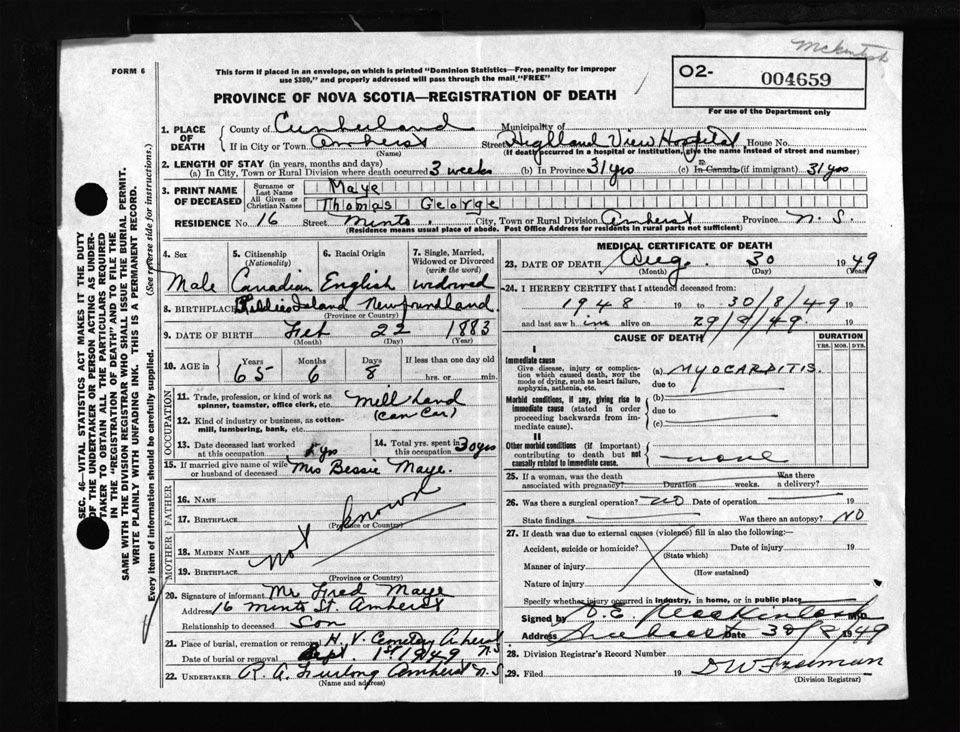 McKintosh
FORM 6
This form if placed in an envelope, on which is printed "Dominion Statistics—Free, penalty for improper
use $300," and properly addressed will pass through the mail "FREE"
PROVINCE OF NOVA SCOTIA—REGISTRATION OF DEATH
O2- 004659
For use of the Department only
1. PLACE OF DEATH County of Cumberland Municipality of
If in City or Town Amherst Street Highland View Hospital House No.
(Name) (If death occurred in a hospital or institution, give the name instead of street and number)
2. LENGTH OF STAY (in years, months and days)
(a) In City, Town or Rural Division where death occurred 3 weeks (b) In Province 31 yrs (c) In Canada (if immigrant) 31 yrs
3. PRINT NAME OF DECEASED Surname or Last Name Maye
All Given or Christian Names Thomas George
RESIDENCE No. 16 Street Minto City, Town or Rural Division Amherst Province N. S.
(Residence means usual place of abode. Post Office Address for residents in rural parts not sufficient)
4. Sex 5. Citizenship (Nationality) 6. Racial Origin 7. Single, Married, Widowed or Divorced (write the word)
Male Canadian English widowed
8. BIRTHPLACE Island Newfoundland
(Province or Country)
9. DATE OF BIRTH Feb 22 1883
(Month) (Day) (Year)
10. AGE in Years Months Days If less than one day old
65 6 8 hrs. or min.
OCCUPATION
11. Trade, profession or kind of work as spinner, teamster, office clerk, etc. Mill hand
(Can Car)
12. Kind of industry or business, as cotton-mill, lumbering, bank, etc.
13. Date deceased last worked at this occupation yrs 14. Total yrs. spent in this occupation 30 yrs
15. If married give name of wife or husband of deceased Mrs Bessie Maye.
FATHER
16. NAME
17. BIRTHPLACE
(Province or Country)
not known
MOTHER
18. MAIDEN NAME
19. BIRTHPLACE
(Province or Country)
20. Signature of informant Mr Fred Maye
Address 16 Minto St. Amherst
Relationship to deceased Son
21. Place of burial, cremation or removal H. V. Cemetery Amherst N S
Date of burial or removal Sept 1st 1949
22. UNDERTAKER R. A. Furlong Amherst N. S
(Name and address)
MEDICAL CERTIFICATE OF DEATH
23. DATE OF DEATH Aug. 30 1949
(Month) (Day) (Year)
24. I HEREBY CERTIFY that I attended deceased from:
1948 19 to 30/8/49 19
and last saw him alive on 29/8/49 19
CAUSE OF DEATH DURATION
YRS. MOS. DYS.
I
Immediate cause
Give disease, injury or complication which caused death, not the mode of dying, such as heart failure, asphyxia, asthenia, etc.
(a) MYOCARDITIS.
due to
Morbid conditions, if any, giving rise to immediate cause (stated in order proceeding backwards from immediate cause).
(b)
due to
(c)
II
Other morbid conditions (if important) contributing to death but not causally related to immediate cause.
none
25. If a woman, was the death associated with pregnancy? Duration weeks. Was there a delivery?
26. Was there a surgical operation? no Date of operation 19
State findings Was there an autopsy? NO
27. If death was due to external causes (violence) fill in also the following:—
Accident, suicide or homicide? Date of injury 19
(State which)
Manner of injury
(How sustained)
Nature of injury
Specify whether injury occurred in industry, in home, or in public place
Signed by D. E. MacKintosh M.D.
Address Amherst Date 30/8 1949
28. Division Registrar's Record Number
29. Filed 19 D W Freeman
(Division Registrar)
SEC. 46—VITAL STATISTICS ACT MAKES IT THE DUTY
OF THE UNDERTAKER OR PERSON ACTING AS UNDER-
TAKER TO OBTAIN ALL THE PARTICULARS REQUIRED
IN THE "REGISTRATION OF DEATH" AND TO FILE THE
SAME WITH THE DIVISION REGISTRAR WHO SHALL ISSUE THE BURIAL PERMIT.
WRITE PLAINLY WITH UNFADING INK. THIS IS A PERMANENT RECORD.
Every item of information should be carefully supplied. (See reverse side for instructions.)